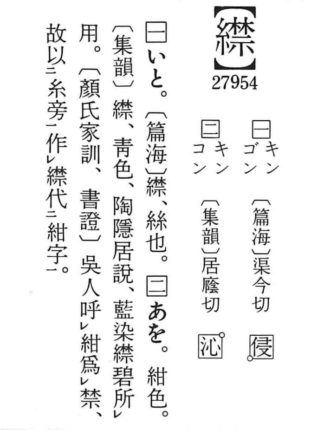 【襟】
27954
㊀キン ゴン 〔篇海〕渠今切 侵
㊁キン コン 〔集韻〕居廕切 沁
㊀いと。〔篇海〕䌝、絲也。㊁あを。紺色。
〔集韻〕䌝、靑色、陶隱居說、藍染䌝碧所㆑
用。〔顏氏家訓、書證〕吳人呼㆑紺爲㆑禁、
故以㆓糸旁㆒作㆑䌝代㆓紺字㆒。